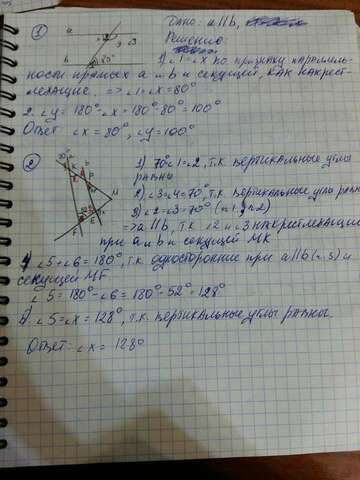 ① Дано: a||b,
Решение:
a
b
80°
1) ∠1=∠x по признку параллель-
ности прямых a и b и секущей, как накрест-
лежащие. => ∠1=∠x=80°
2. ∠y=180°-∠x=180°-80°=100°
Ответ ∠x=80°, ∠y=100°
② 1) 70°∠1=∠2, т.к. вертикальные углы
равны
2) ∠3=∠4=70°, т.к. вертикальные углы равн
3) ∠2=∠3=70° (п.1, п.2)
=> a||b, т.к. ∠2 и ∠3 накрестлежащие
при a и b и секущей MK
K
M
F
E
4) ∠5+∠6=180°, т.к. односторонние при a||b(п.3) и
секущей MF
∠5=180°-∠6=180°-52°=128°
∠5=∠x=128°, т.к. вертикальные углы равны
Ответ: ∠x=128°